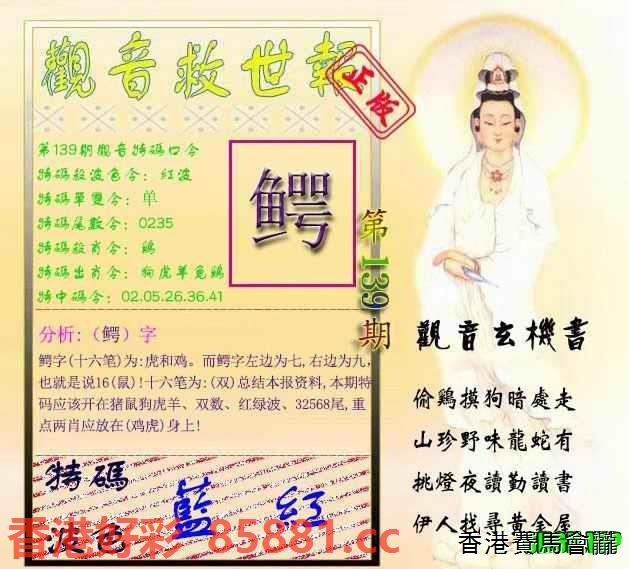 觀音救世報
正版
第139期觀音特碼口令
特碼殺波色令：紅波
特碼單雙令：单
特碼尾數令：0235
特碼殺肖令：鷄
特碼出肖令：狗虎羊兔鷄
特中碼令：02.05.26.36.41
鳄
第139期
分析:（鳄）字
鳄字(十六笔)为:虎和鸡。而鳄字左边为七,右边为九,
也就是说16(鼠)!十六笔为:(双)总结本报资料,本期特
码应该开在猪鼠狗虎羊、双数、红绿波、32568尾,重
点两肖应放在(鸡虎)身上!
特碼
波色
藍 紅
香港好彩 85881.cc
觀音玄機書
偷鷄摸狗暗處走
山珍野味龍蛇有
挑燈夜讀勤讀書
伊人找尋黃金屋
香港賽馬會